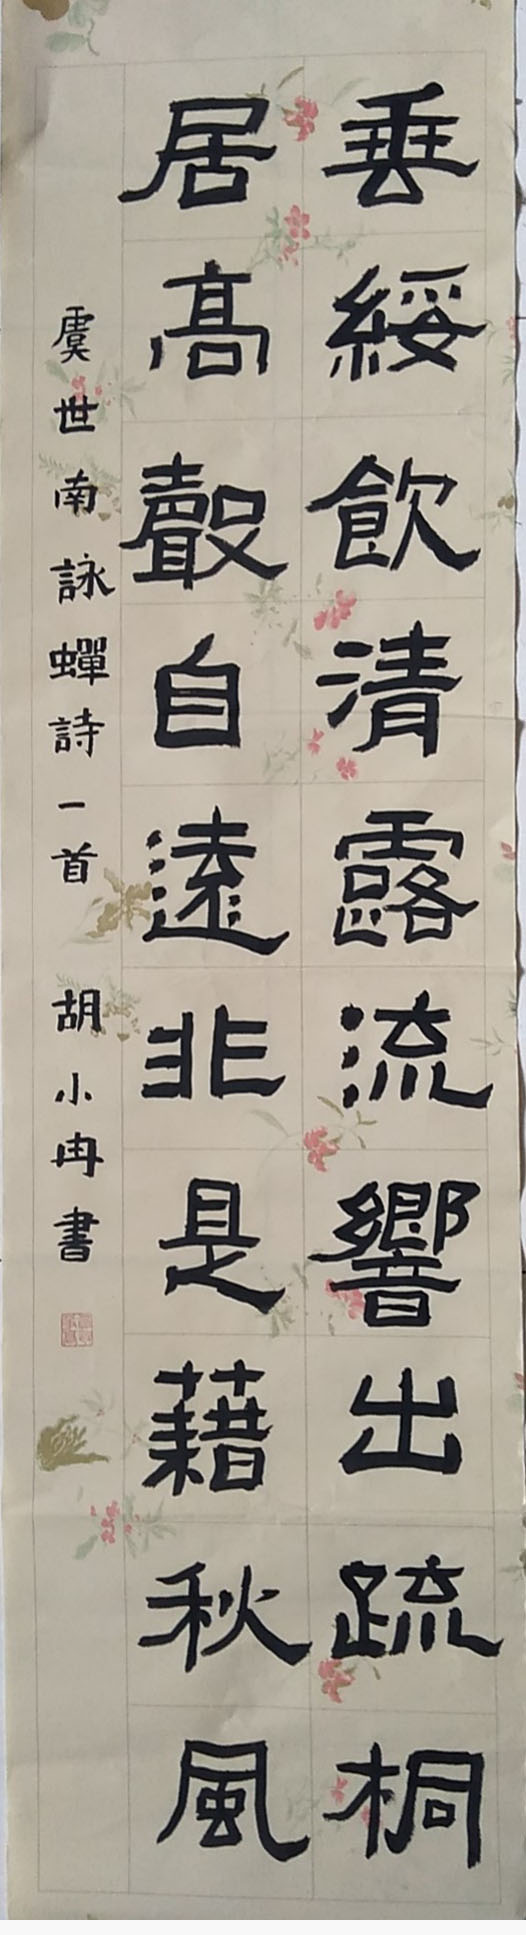 垂緌飲清露流響出疏桐
居高聲自遠非是藉秋風
虞世南詠蟬詩一首 胡小冉書